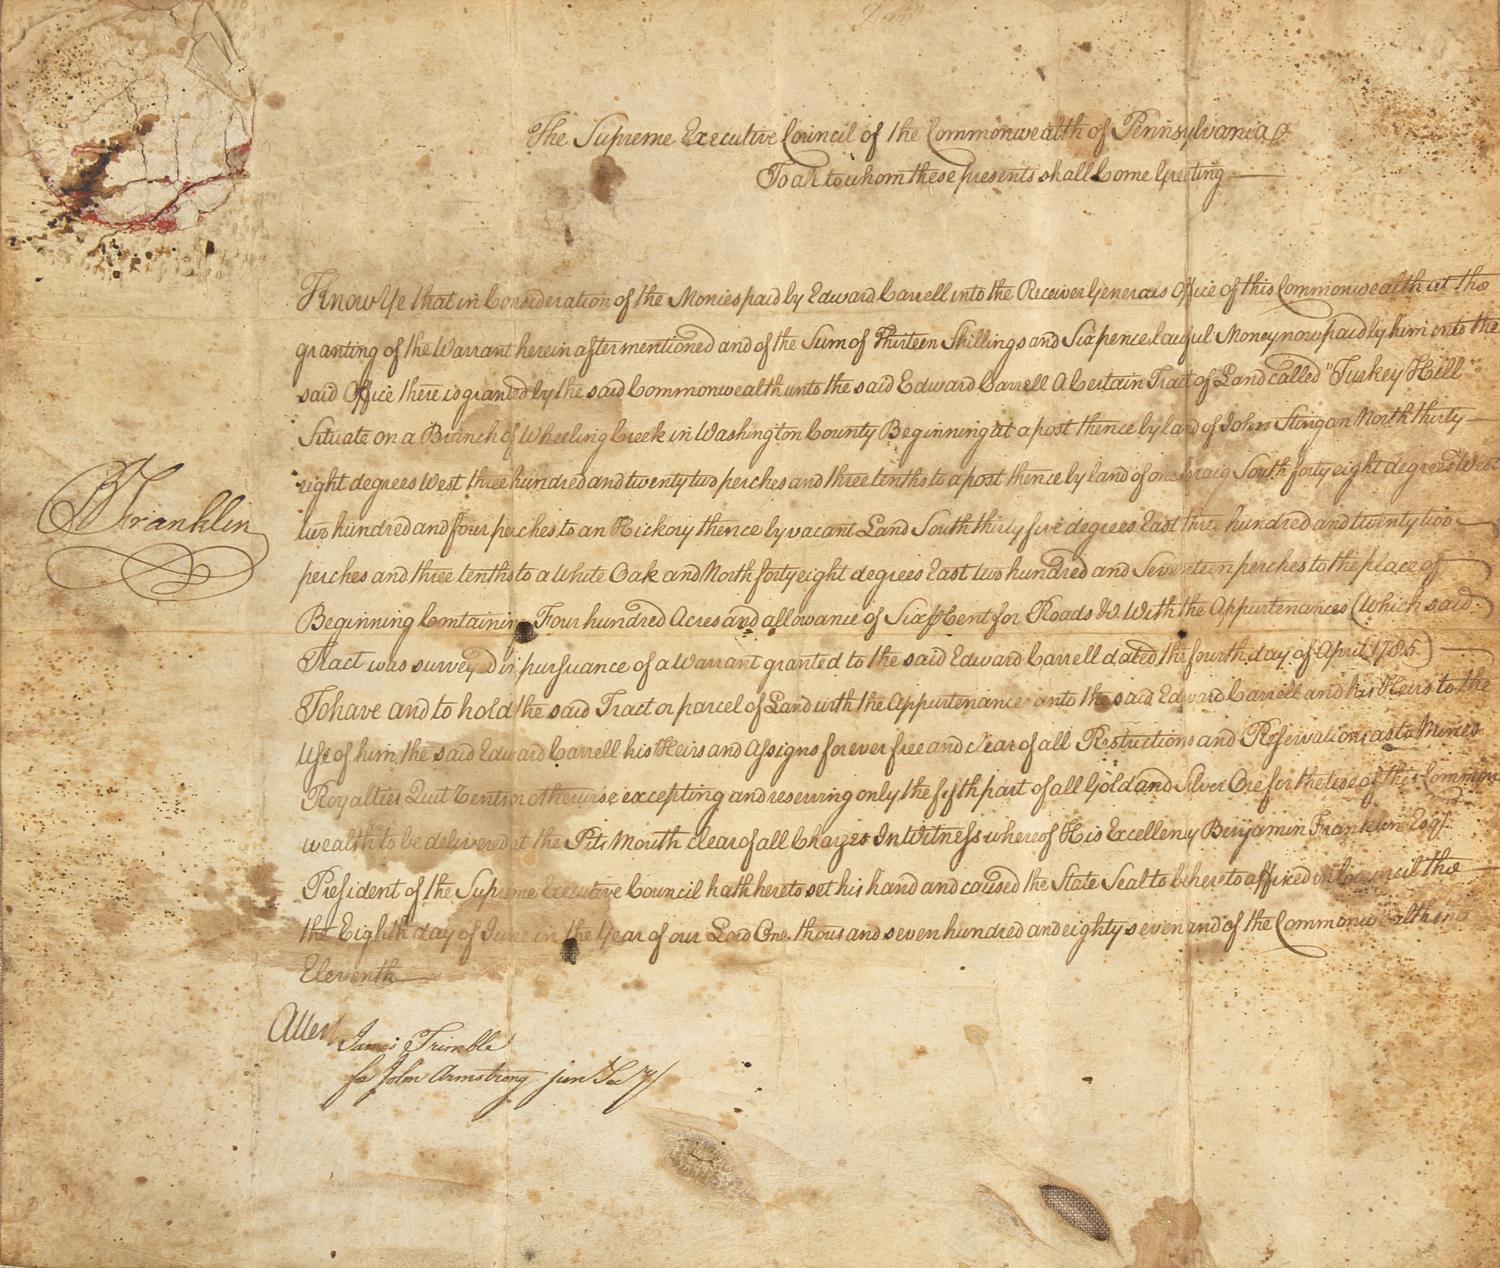 The Supreme Executive Council of the Commonwealth of Pennsylvania
To all to whom these presents shall Come Greeting
Know Ye that in Consideration of the Monies paid by Edward Carrell into the Receiver Generals Office of this Commonwealth at the
granting of the Warrant herein after mentioned and of the Sum of Thirteen Shillings and Six pence lawful Money now paid by him into the
said Office there is granted by the said Commonwealth unto the said Edward Carrell A Certain Tract of Land called "Turkey Hill"
Situate on a Branch of Wheeling Creek in Washington County Beginning at a post thence by land of John North thirty
eight degrees West three hundred and twenty two perches and three tenths to a post thence by land of one Craig South forty eight degrees West
two hundred and four perches to an Hickory thence by vacant Land South thirty five degrees East three hundred and twenty two
perches and three tenths to a White Oak and North forty eight degrees East two hundred and Seventeen perches to the place of
Beginning Containing Four hundred Acres and allowance of Six Cent for Roads &c. With the Appurtenances (Which said
Tract was surveyed in pursuance of a Warrant granted to the said Edward Carrell dated the fourth day of April 1785)
To have and to hold the said Tract or parcel of Land with the Appurtenances unto the said Edward Carrell and his Heirs to the
Use of him the said Edward Carrell his Heirs and Assigns forever free and clear of all Restrictions and Reservations as to Mines
Royalties Quit Rents or otherwise excepting and reserving only the fifth part of all Gold and Silver Ore for the use of this Common
wealth to be delivered at the Pits Mouth clear of all Charges In Witness whereof His Excellency Benjamin Franklin Esqr.
President of the Supreme Executive Council hath hereto set his hand and caused the State Seal to be hereto affixed in Council the
the Eighth day of June in the Year of our Lord One thousand seven hundred and eighty seven and of the Commonwealth the
Eleventh
B Franklin
Attest
James Trimble
for John Armstrong jun Secry